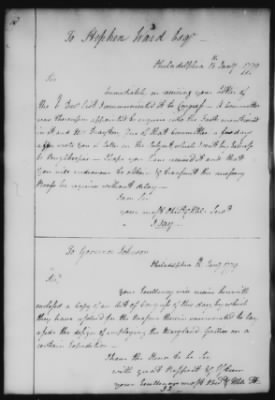 To Stephen Ward Esqr
Philadelphia 8th Jany 1779
Sir
Immediately on receiving your Letter of
the I communicated it to Congress - A Committee
was thereupon appointed to enquire into the Facts mentioned
in it and Mr Drayton one of that Committee a few days
after wrote you a Letter on the Subject which I
to I hope you have received it and that
you will endeavour to obtain & transmit the necessary
Proofs he requires without delay -
I am Sir
your most Obedt & Hble Servt
J. Jay
To Governor Johnson
Philadelphia 8th Jany 1779
Sir,
Your Excellency will receive herewith
enclosed a Copy of an Act of Congress of this day by which
they have for the Reasons therein mentioned to lay
aside the design of employing the Maryland Gallies on a
certain Expedition -
I have the Honor to be Sir
with great Respect & Esteem
your Excellency's most Obedt & Hble St